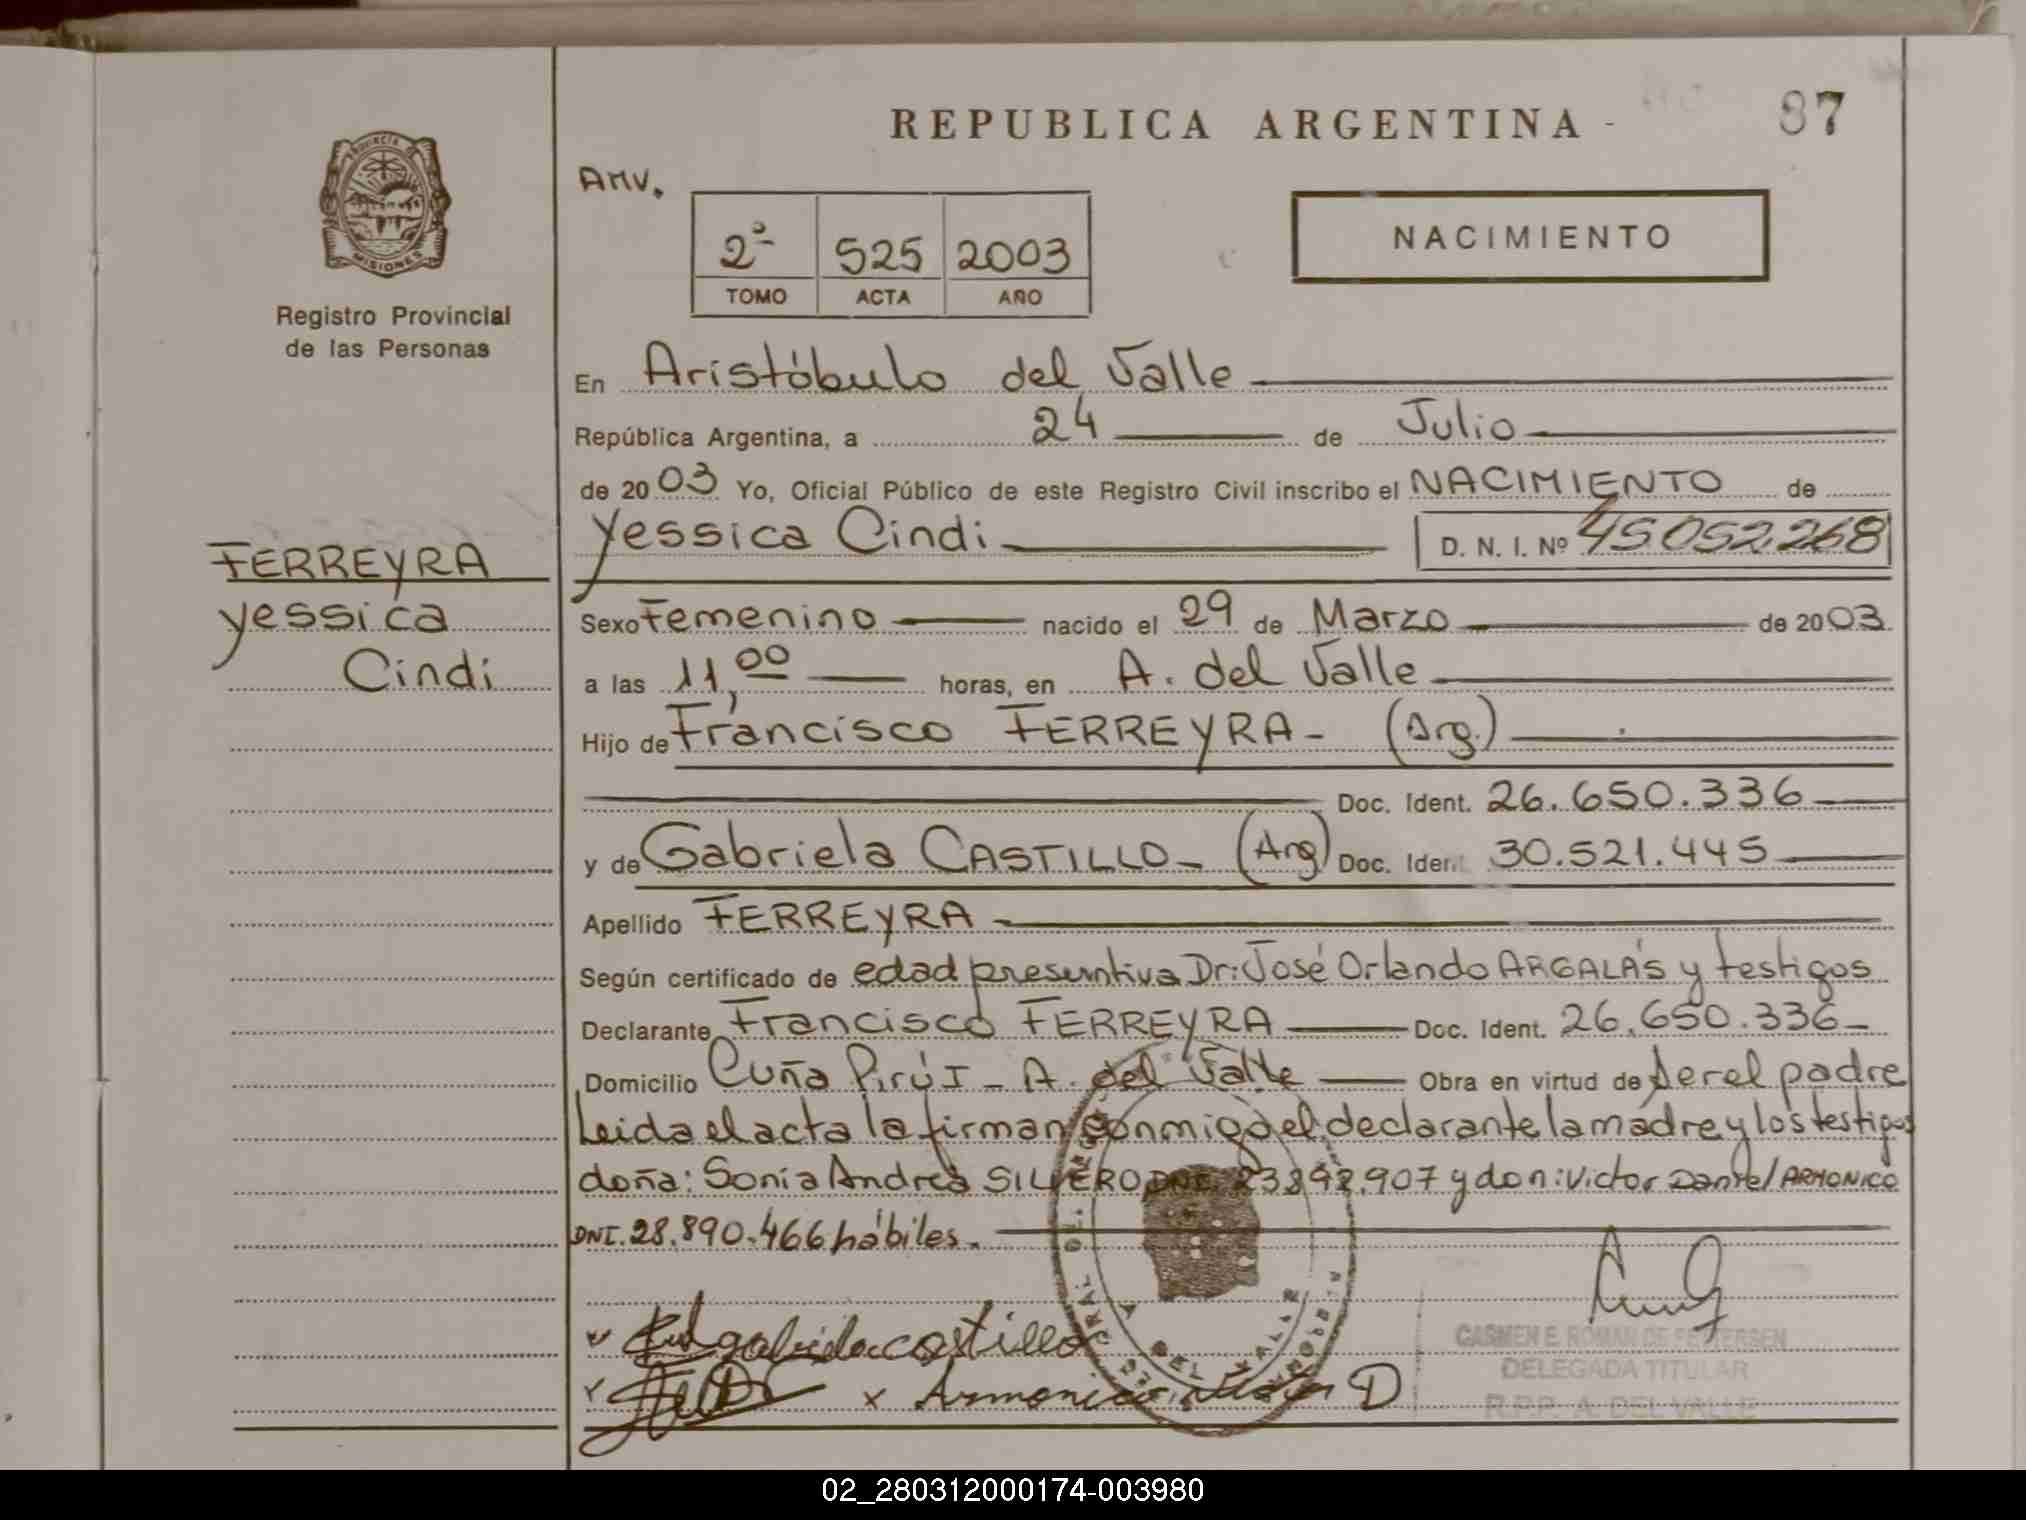 REPUBLICA ARGENTINA
87
PROVINCIA DE
MISIONES
Registro Provincial
de las Personas
AMV.
2ª 525 2003
TOMO ACTA AÑO
NACIMIENTO
En Aristóbulo del Valle
República Argentina, a 24 de Julio
de 2003 Yo, Oficial Público de este Registro Civil inscribo el NACIMIENTO de
Yessica Cindi D. N. I. Nº 45052.268
FERREYRA
Yessica
Cindi
Sexo Femenino nacido el 29 de Marzo de 2003
a las 11,00 horas, en A. del Valle
Hijo de Francisco FERREYRA - (Arg.)
Doc. Ident. 26.650.336
y de Gabriela CASTILLO - (Arg) Doc. Ident. 30.521.445
Apellido FERREYRA
Según certificado de edad presuntiva Dr: José Orlando ARGALÁS y testigos
Declarante Francisco FERREYRA Doc. Ident. 26.650.336
Domicilio Cuña Pirú I - A. del Valle Obra en virtud de ser el padre
Leida el acta la firman conmigo el declarante la madre y los testigos
doña: Sonia Andrea SILVERO DNI. 23.892.907 y don: Victor Daniel ARMONICO
DNI. 28.890.466 hábiles.
gabriela castillo
x Armonico D
A DEL VALLE
CARMEN E. ROMAN DE PETTERSEN
DELEGADA TITULAR
R.P.P. A. DEL VALLE
02_280312000174-003980